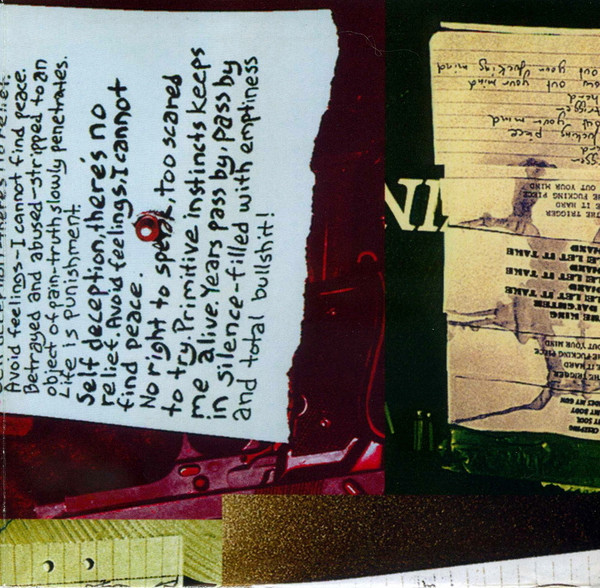 deception, there's no relief.
Avoid feelings-I cannot find peace.
Betrayed and abused-stripped to an
object of pain-truth slowly penetrates.
Life is punishment.
Self deception, there's no
relief. Avoid feelings. I cannot
find peace.
No right to speak, too scared
to try. Primitive instincts keeps
me alive. Years pass by, pass by
in silence-filled with emptiness
and total bullshit!
NI
CREEPING
SOUL
BODY
MY GUN
THE TRIGGER
IT HARD
FUCKING PIECE
OUT YOUR MIND
THE KING
DAUGHTER
LE LET IT TAKE
HARD
LE LET IT TAKE
HARD
LE LET IT TAKE
HARD
THE TRIGGER
E IT HARD
HE FUCKING PIECE
OUT YOUR MIND
fucking piece
out your mind
trigger
hard
out your mind
out your fucking mind